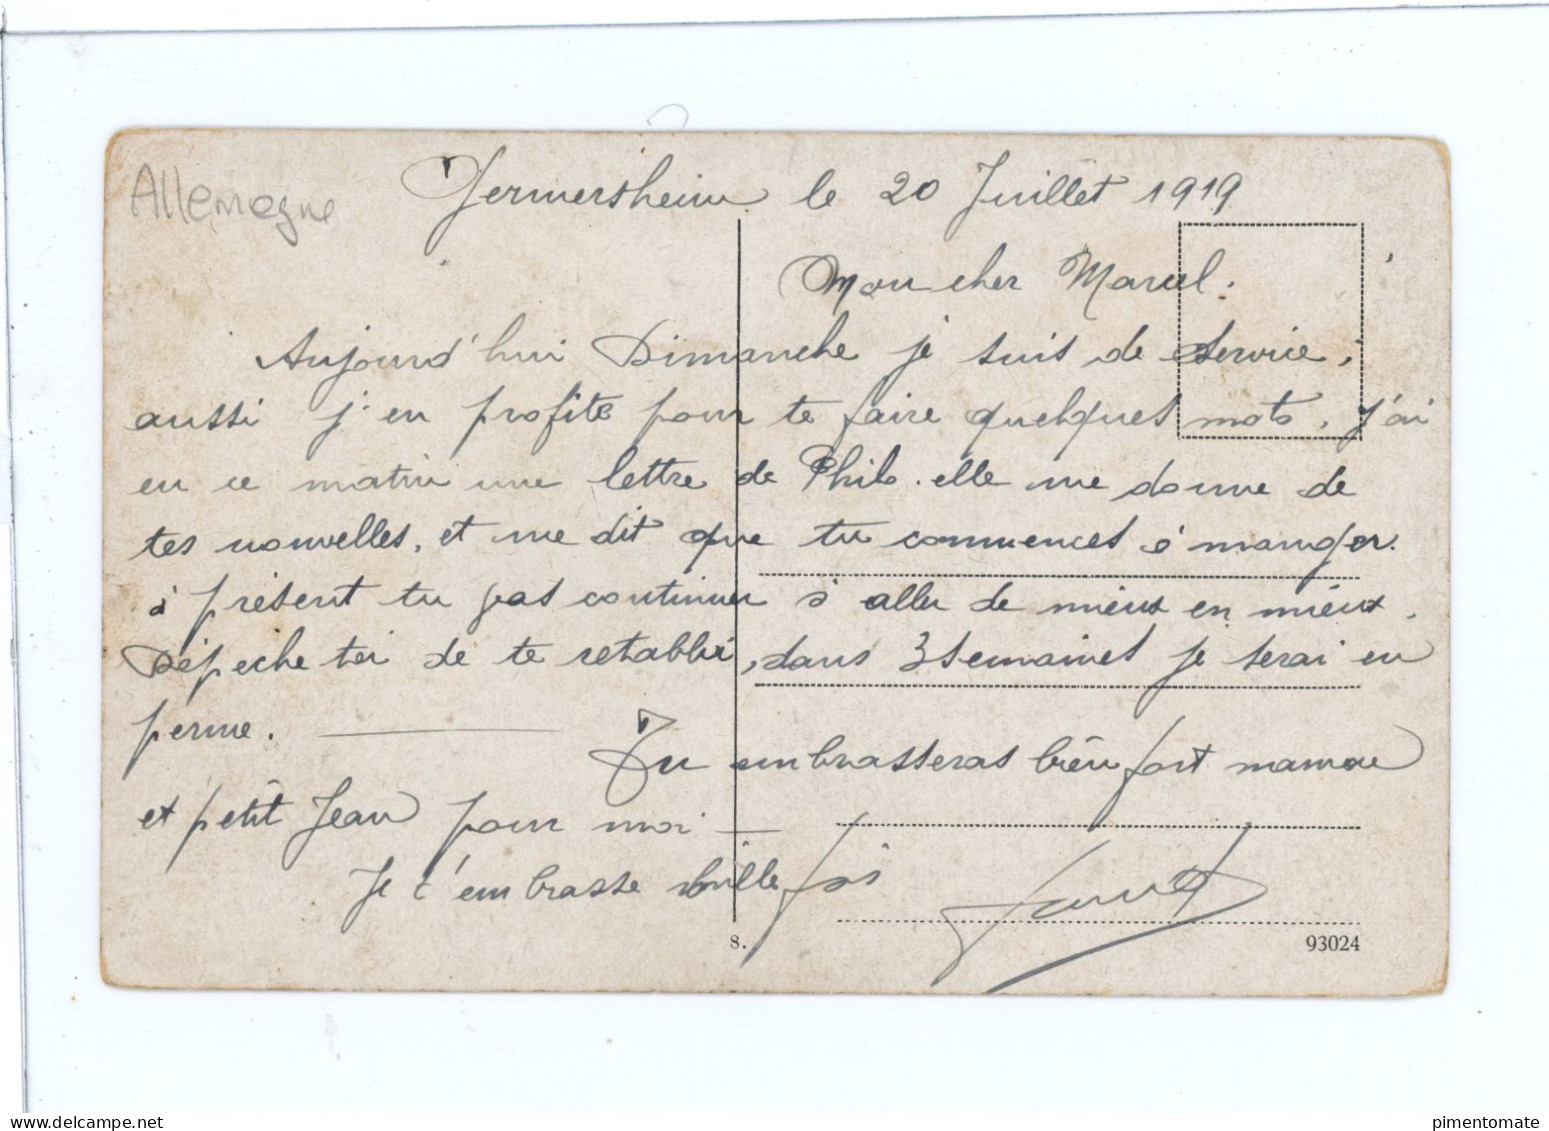 Allemagne
Germersheim le 20 Juillet 1919
Mon cher Marcel.
Aujourd'hui Dimanche je suis de service,
aussi j'en profite pour te faire quelques mots, j'ai
eu ce matin une lettre de Philo. elle me donne de
tes nouvelles, et me dit que tu commences à manger.
à présent tu vas continuer à aller de mieux en mieux.
Dépèche toi de te retablir, dans 3 semaines je serai en
perme.
Tu embrasseras bien fort maman
et petit Jean pour moi —
Je t'embrasse mille fois
8.
93024
www.delcampe.net
pimentomate